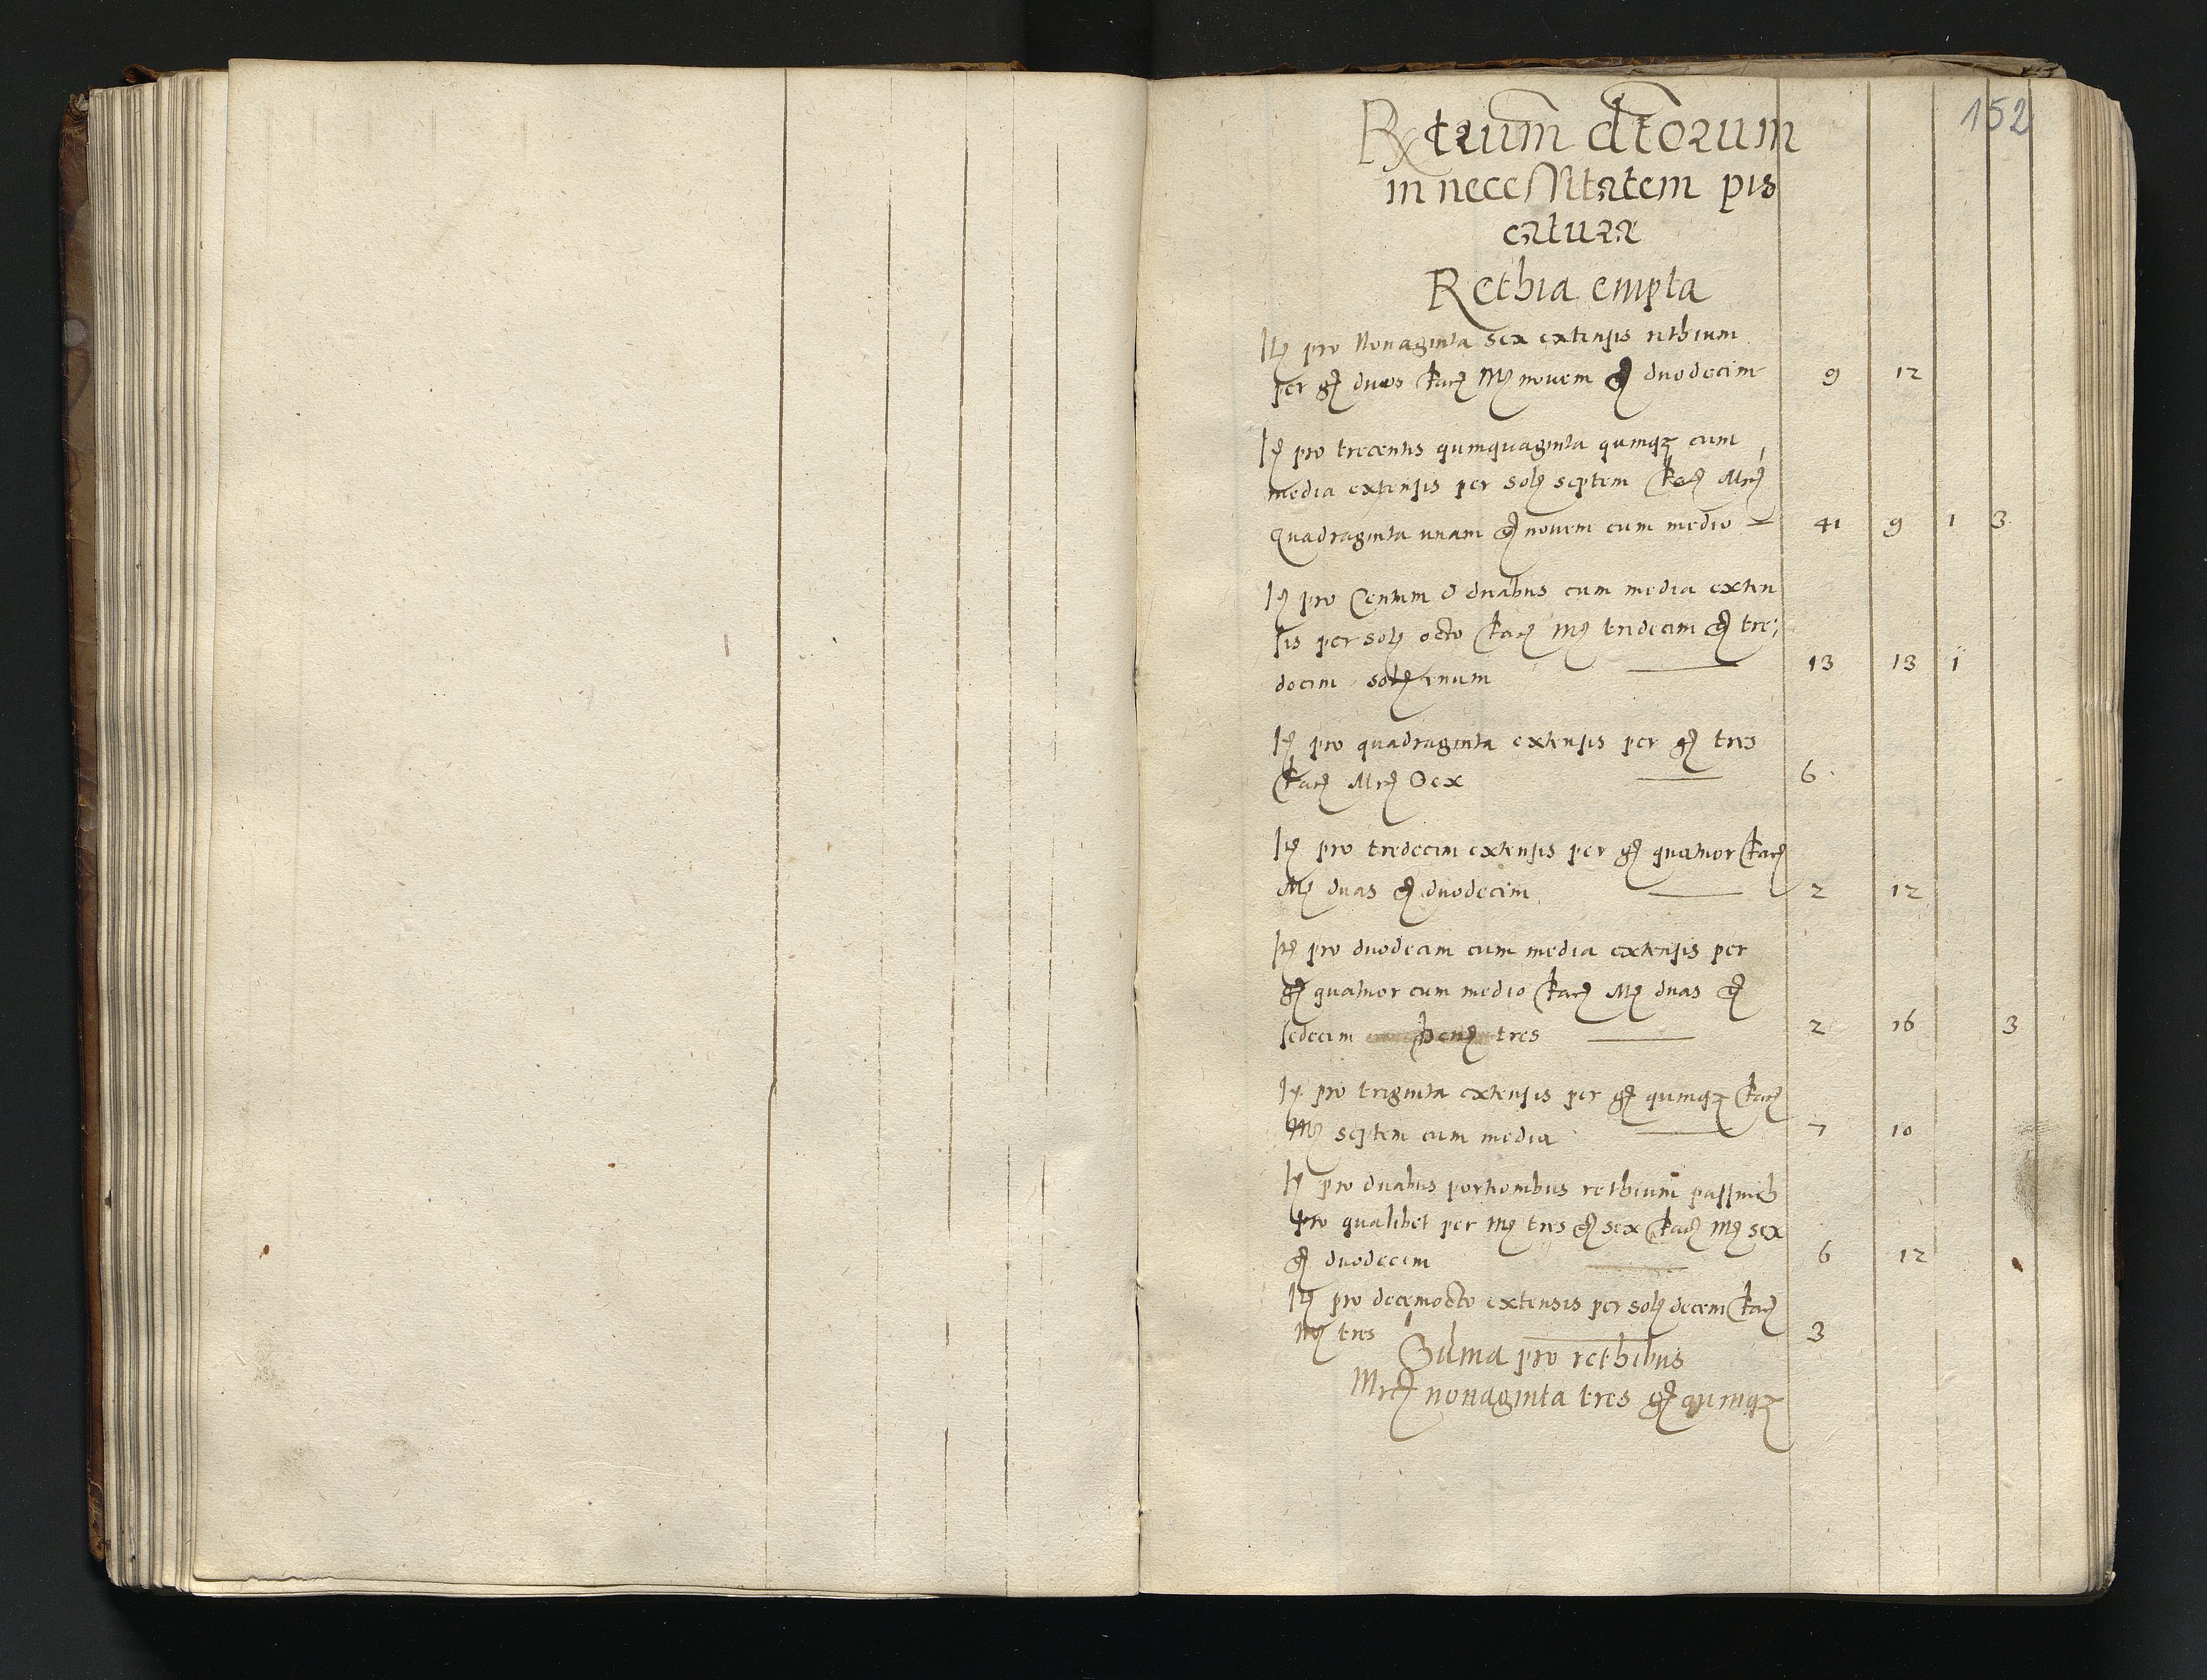 152
Rx trium ctorum
in necessitatem pis
caturæ
Rethia empta
It pro Nonaginta sex extensis rethium
per gr duos facit Mr novem gr duodecim 9 12
It pro trecentis quinquaginta quinqz cum
media extensis per sol septem facit Mrc
Quadraginta unam gr novem cum medio 41 9 1 3
It pro Centum & duabus cum media exten
sis per sol octo facit Mr tridecim gr tre;
decim sol unum 13 13 1
It pro quadraginta extensis per gr tres
facit Mrc Sex 6
It pro tredecim extensis per gr quatuor facit
Mr duas gr duodecim 2 12
It pro duodecim cum media extensis per
gr quatuor cum medio facit Mr duas gr
sedecim den tres 2 16 3
It pro triginta extensis per gr quinqz facit
Mr septem cum media 7 10
It pro duabus portionibus rethium
pro qualibet per Mr tres gr sex facit Mr sex
gr duodecim 6 12
It pro decemocto extensis per sol decem facit
Mr tres 3
Suma pro rethibus
Mrc nonaginta tres gr quinqz